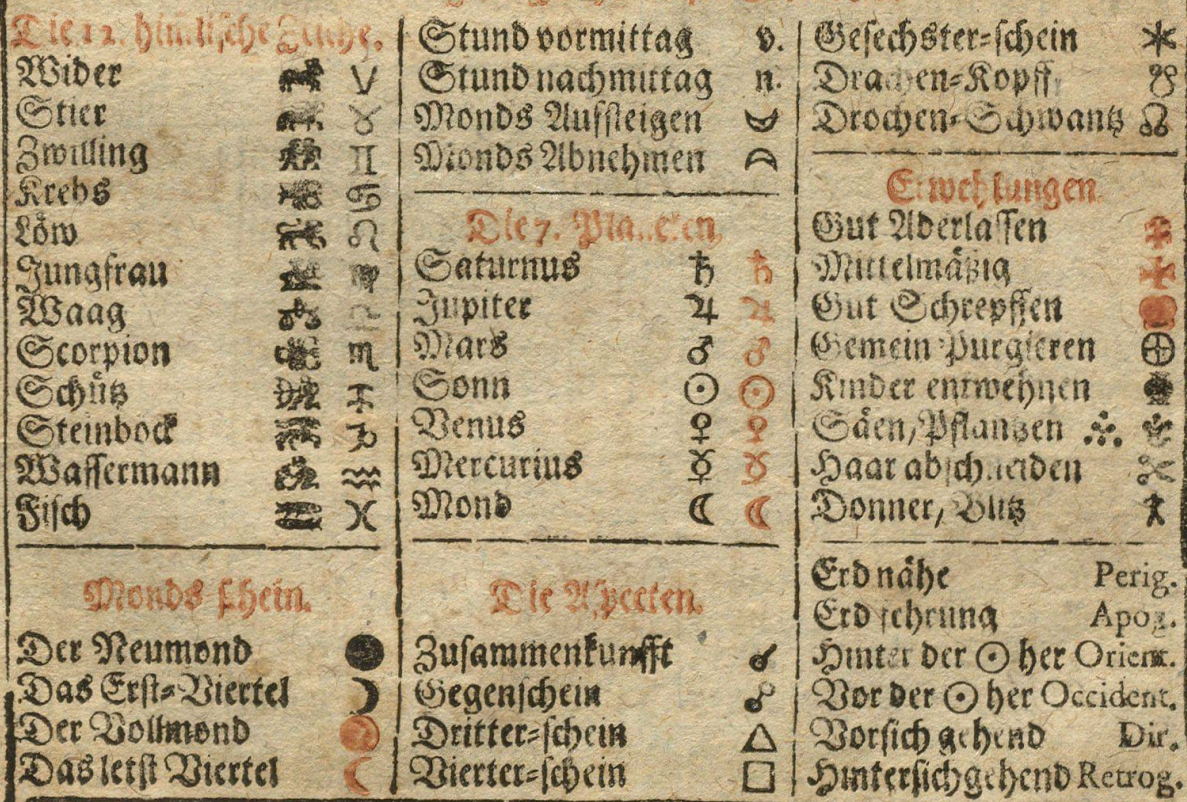 Die 12. himlische Zeiche.
Wider ♈
Stier ♉
Zwilling ♊
Krebs ♋
Löw ♌
Jungfrau ♍
Waag ♎
Scorpion ♏
Schütz ♐
Steinbock ♑
Wassermann ♒
Fisch ♓
Monds schein.
Der Neumond ●
Das Erst-Viertel ☽
Der Vollmond
Das letst Viertel ☾
Stund vormittag v.
Stund nachmittag n.
Monds Auffsteigen
Monds Abnehmen
Die 7. Planeten
Saturnus ♄ ♄
Jupiter ♃ ♃
Mars ♂ ♂
Sonn ☉ ☉
Venus ♀ ♀
Mercurius ☿ ☿
Mond ☾ ☾
Die Aspecten.
Zusammenkunfft ☌
Gegenschein ☍
Dritter-schein △
Vierter-schein □
Gesechster-schein ✶
Drachen-Kopff ☋
Drochen-Schwantz ☊
Erwehlungen.
Gut Aderlassen
Mittelmäßig
Gut Schrepffen
Gemein Purgieren ⊕
Kinder entwehnen
Säen/Pflantzen
Haar abschneiden ✂
Donner, Blitz
Erdnähe Perig.
Erdfehrung Apog.
Hinter der ☉ her Orient.
Vor der ☉ her Occident.
Vorsich gehend Dir.
Hintersichgehend Retrog.